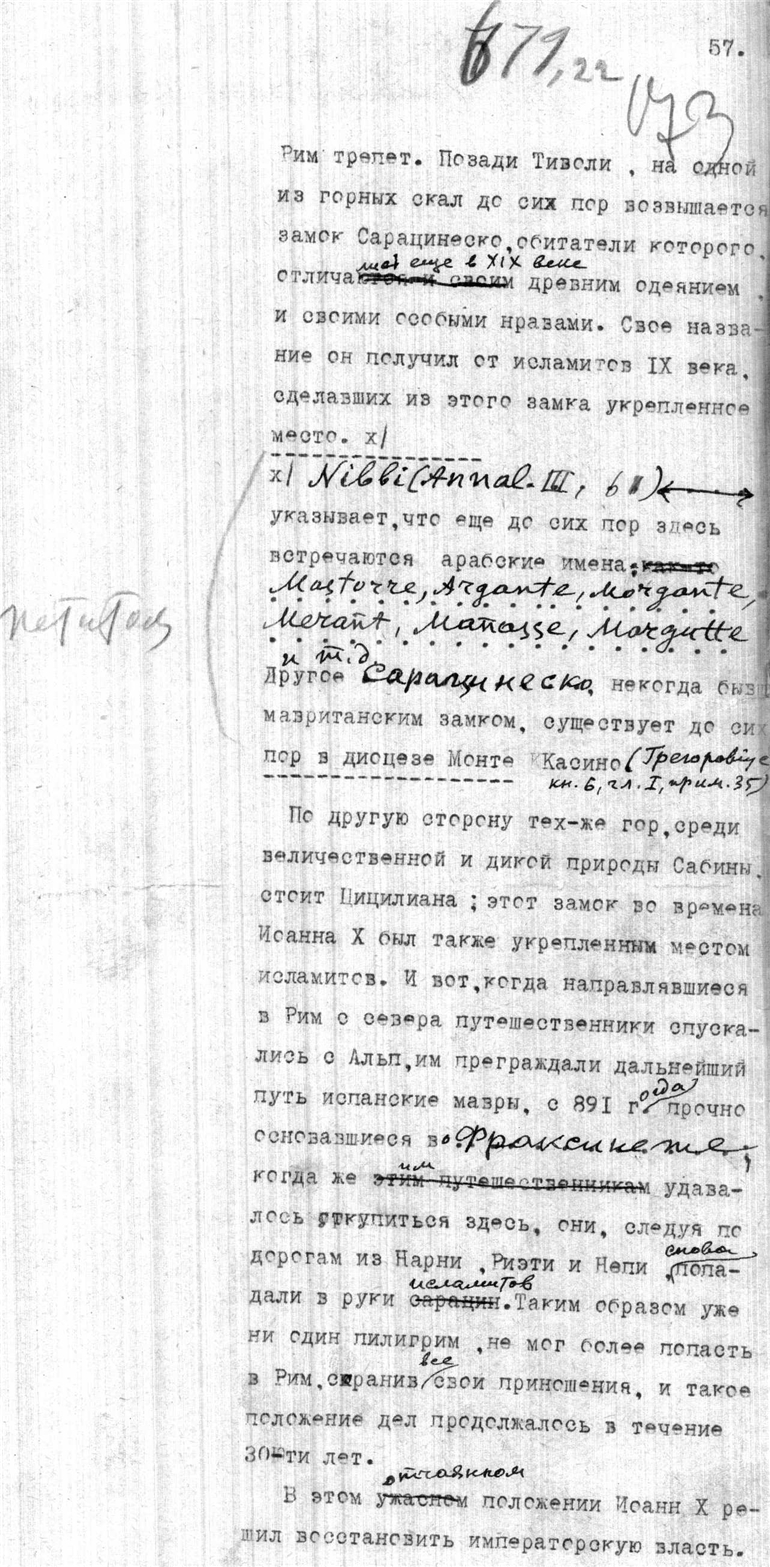 57.
679,22
173
Рим трепет. Позади Тиволи , на одной
из горных скал до сих пор возвышается
замок Сарацинеско, обитатели которого,
шот еще в XIX веке
отличаются и своим древним одеянием ,
и своими особыми нравами. Свое назва-
ние он получил от исламитов IX века,
сделавших из этого замка укрепленное
место. x/
x/ Nibbi (Annal. III, 61)
указывает, что еще до сих пор здесь
встречаются арабские имена: как то
Mastorre, Argante, Morgante,
Merant, Manasse, Morgutte
и т.д.
петитом
Другое Сарацинеско, некогда бывш
мавританским замком, существует до сих
пор в диоцезе Монте Касино (Грегоровiус
кн. 6, гл. I, прим. 35)
По другую сторону тех-же гор, среди
величественной и дикой природы Сабины,
стоит Цицилиана ; этот замок во времена
Иоанна X был также укрепленным местом
исламитов. И вот, когда направлявшиеся
в Рим с севера путешественники спуска-
лись с Альп, им преграждали дальнейший
путь испанские мавры, с 891 года прочно
основавшиеся во Фраксинете,
им
когда же этим путешественникам удава-
лось откупиться здесь, они, следуя по
снова
дорогам из Нарни , Риэти и Непи , попа-
исламитов
дали в руки сарацин. Таким образом уже
ни один пилигрим , не мог более попасть
все
в Рим, сохранив свои приношения, и такое
положение дел продолжалось в течение
30-ти лет.
отчаянном
В этом ужасном положении Иоанн X ре-
шил восстановить императорскую власть.